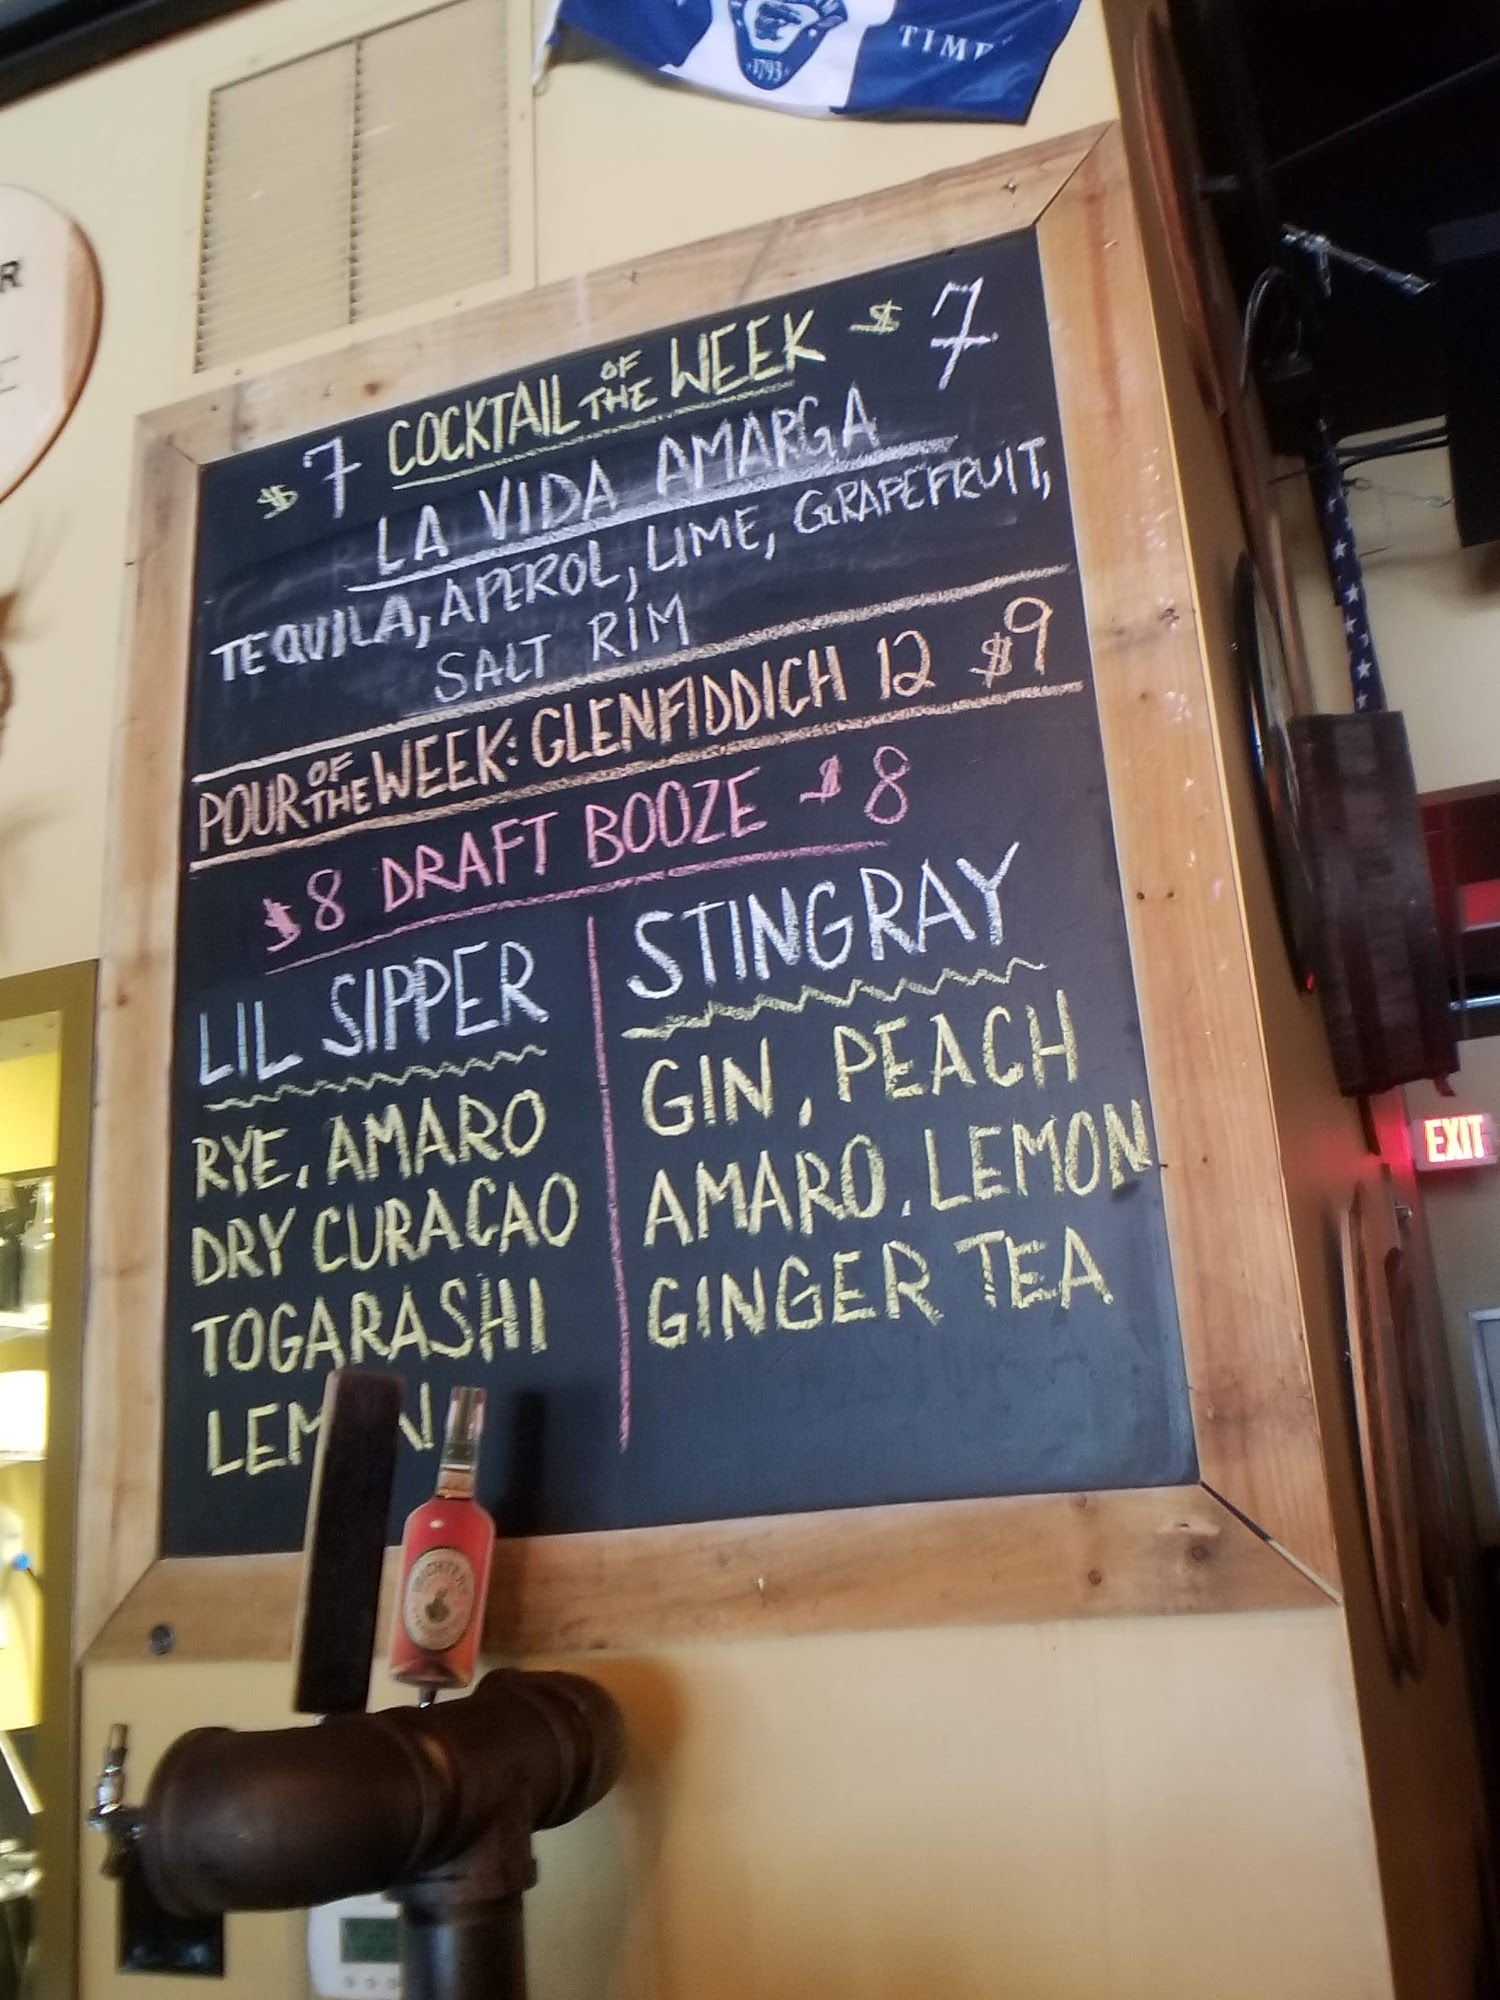 TIME
1793
R
$7 COCKTAIL OF THE WEEK $7
LA VIDA AMARGA
TEQUILA, APEROL, LIME, GRAPEFRUIT,
SALT RIM
POUR OF THE WEEK: GLENFIDDICH 12 $9
$8 DRAFT BOOZE $8
LIL SIPPER
RYE, AMARO
DRY CURACAO
TOGARASHI
LEMON
STINGRAY
GIN, PEACH
AMARO, LEMON
GINGER TEA
EXIT